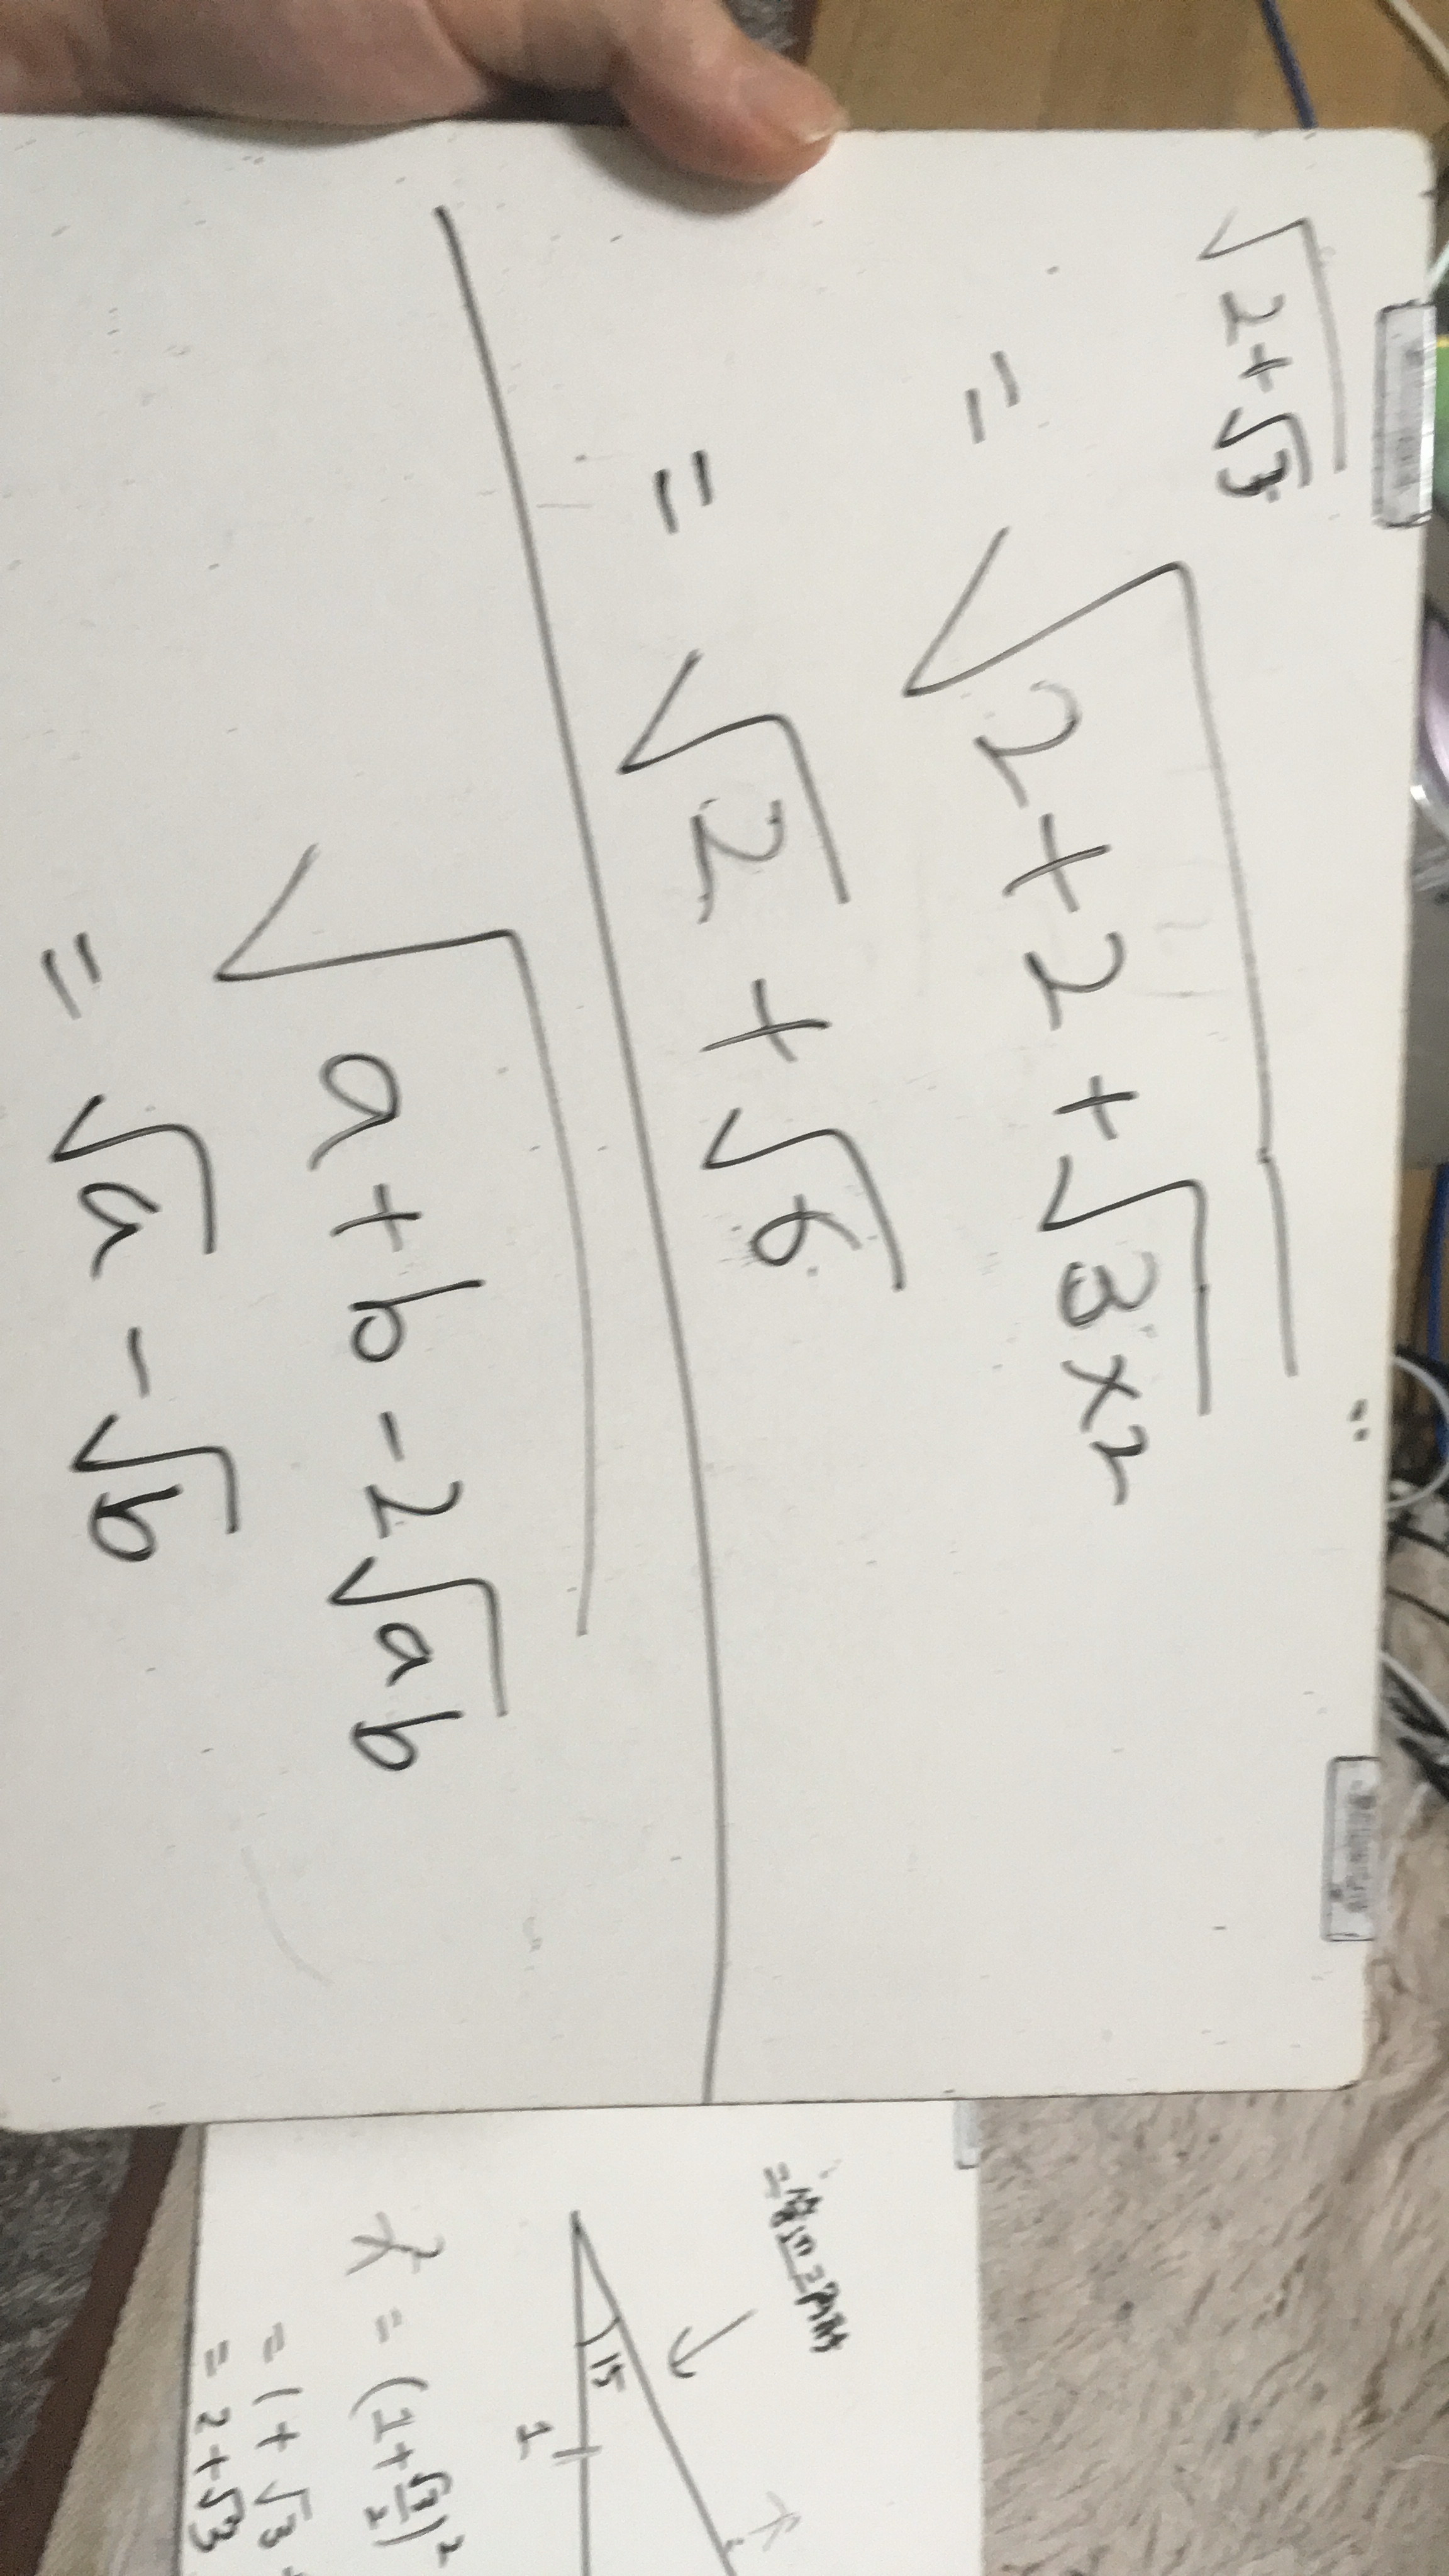 √(2+√3)
= √(2+2+√3×2)
= √2 + √6
√(a+b-2√ab)
= √a - √b
15
1
x² = (1+√3/2)²
= 1+√3
= 2+√3